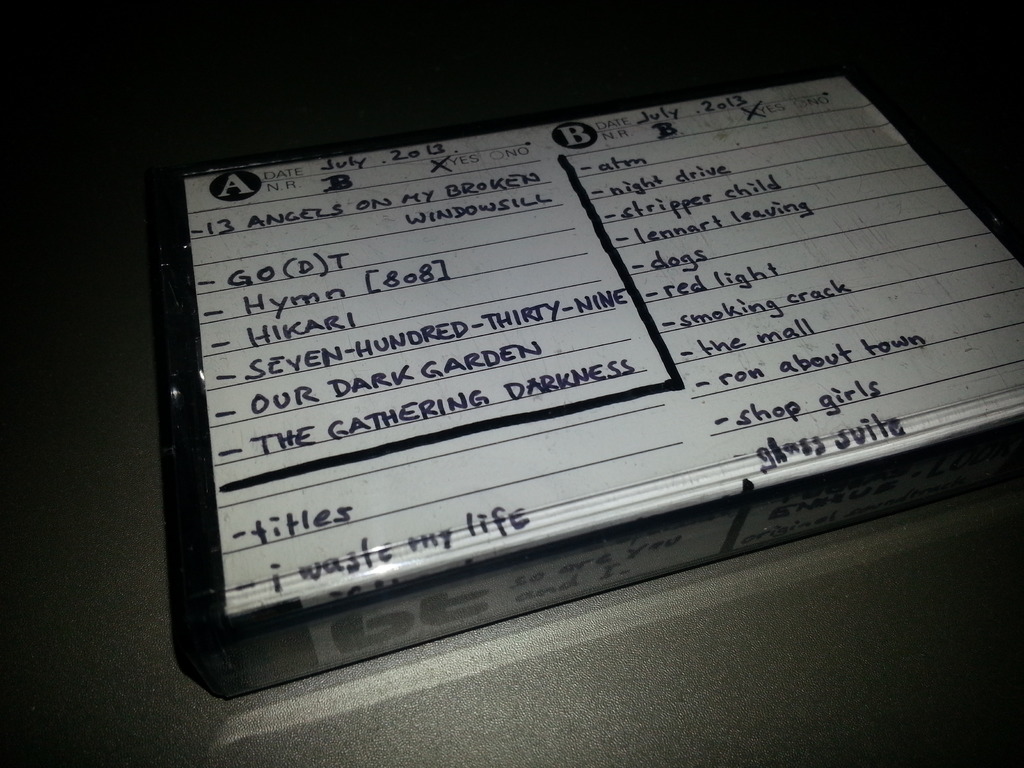 A DATE July . 2013. XYES ONO
N.R. B
- 13 ANGELS ON MY BROKEN
WINDOWSILL
- GO(D)T
- Hymn [808]
- HIKARI
- SEVEN-HUNDRED-THIRTY-NINE
- OUR DARK GARDEN
- THE GATHERING DARKNESS
- titles
- i waste my life
B DATE July . 2013 XYES ONO
N.R. B
- atm
- night drive
- stripper child
- lennart leaving
- dogs
- red light
- smoking crack
- the mall
- ron about town
- shop girls
glass suite
so are you
and I.
original